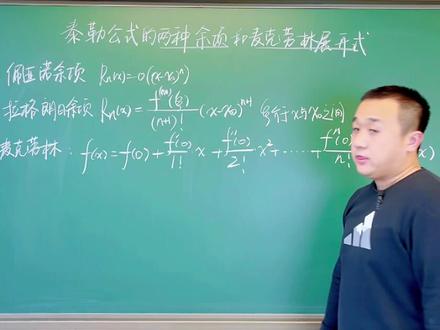 泰勒公式的两种余项和麦克劳林展开式
佩亚诺余项 Rₙ(x)=o((x-x₀)ⁿ)
拉格朗日余项 Rₙ(x)=f⁽ⁿ⁺¹⁾(ξ)/(n+1)! (x-x₀)ⁿ⁺¹ ξ介于x与x₀之间
麦克劳林: f(x)=f(0)+f'(0)/1! x+f''(0)/2! x²+······+fⁿ(0)/n! x)